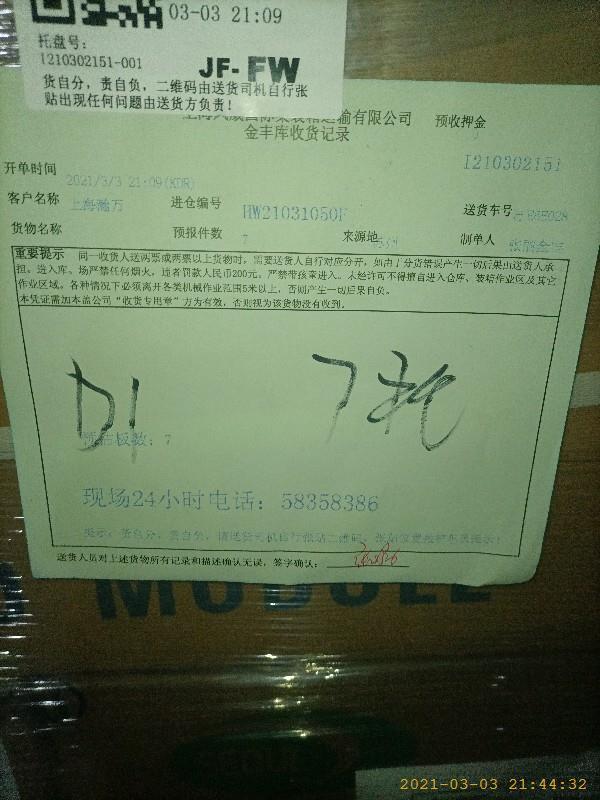 03-03 21:09
托盘号:
1210302151-001
JF-FW
货自分，责自负，二维码由送货司机自行张
贴出现任何问题由送货方负责！
运输有限公司 预收押金
金丰库收货记录
I210302151
开单时间 2021/3/3 21:09(KDR)
客户名称 上海瀚万 进仓编号 HW21031050F 送货车号
货物名称 预报件数 7 来源地 制单人
重要提示 同一收货人送两票或两票以上货物时，需要送货人自行对应分开，如由于分货错误产生一切后果由送货人承
担。进入库、场严禁任何烟火，违者罚款人民币200元。严禁带孩童进入。未经许可不得擅自进入仓库、装箱作业区及其它
作业区域。各种情况下必须离开各类机械作业范围5米以上，否则产生一切后果自负。
本凭证需加本盖公司“收货专用章”方为有效，否则视为该货物没有收到。
D1 7托
预估板数: 7
现场24小时电话: 58358386
提示: 货自分，责自负，请送货司机自行张贴二维码，
送货人员对上述货物所有记录和描述确认无误，签字确认:
MODULE
2021-03-03 21:44:32